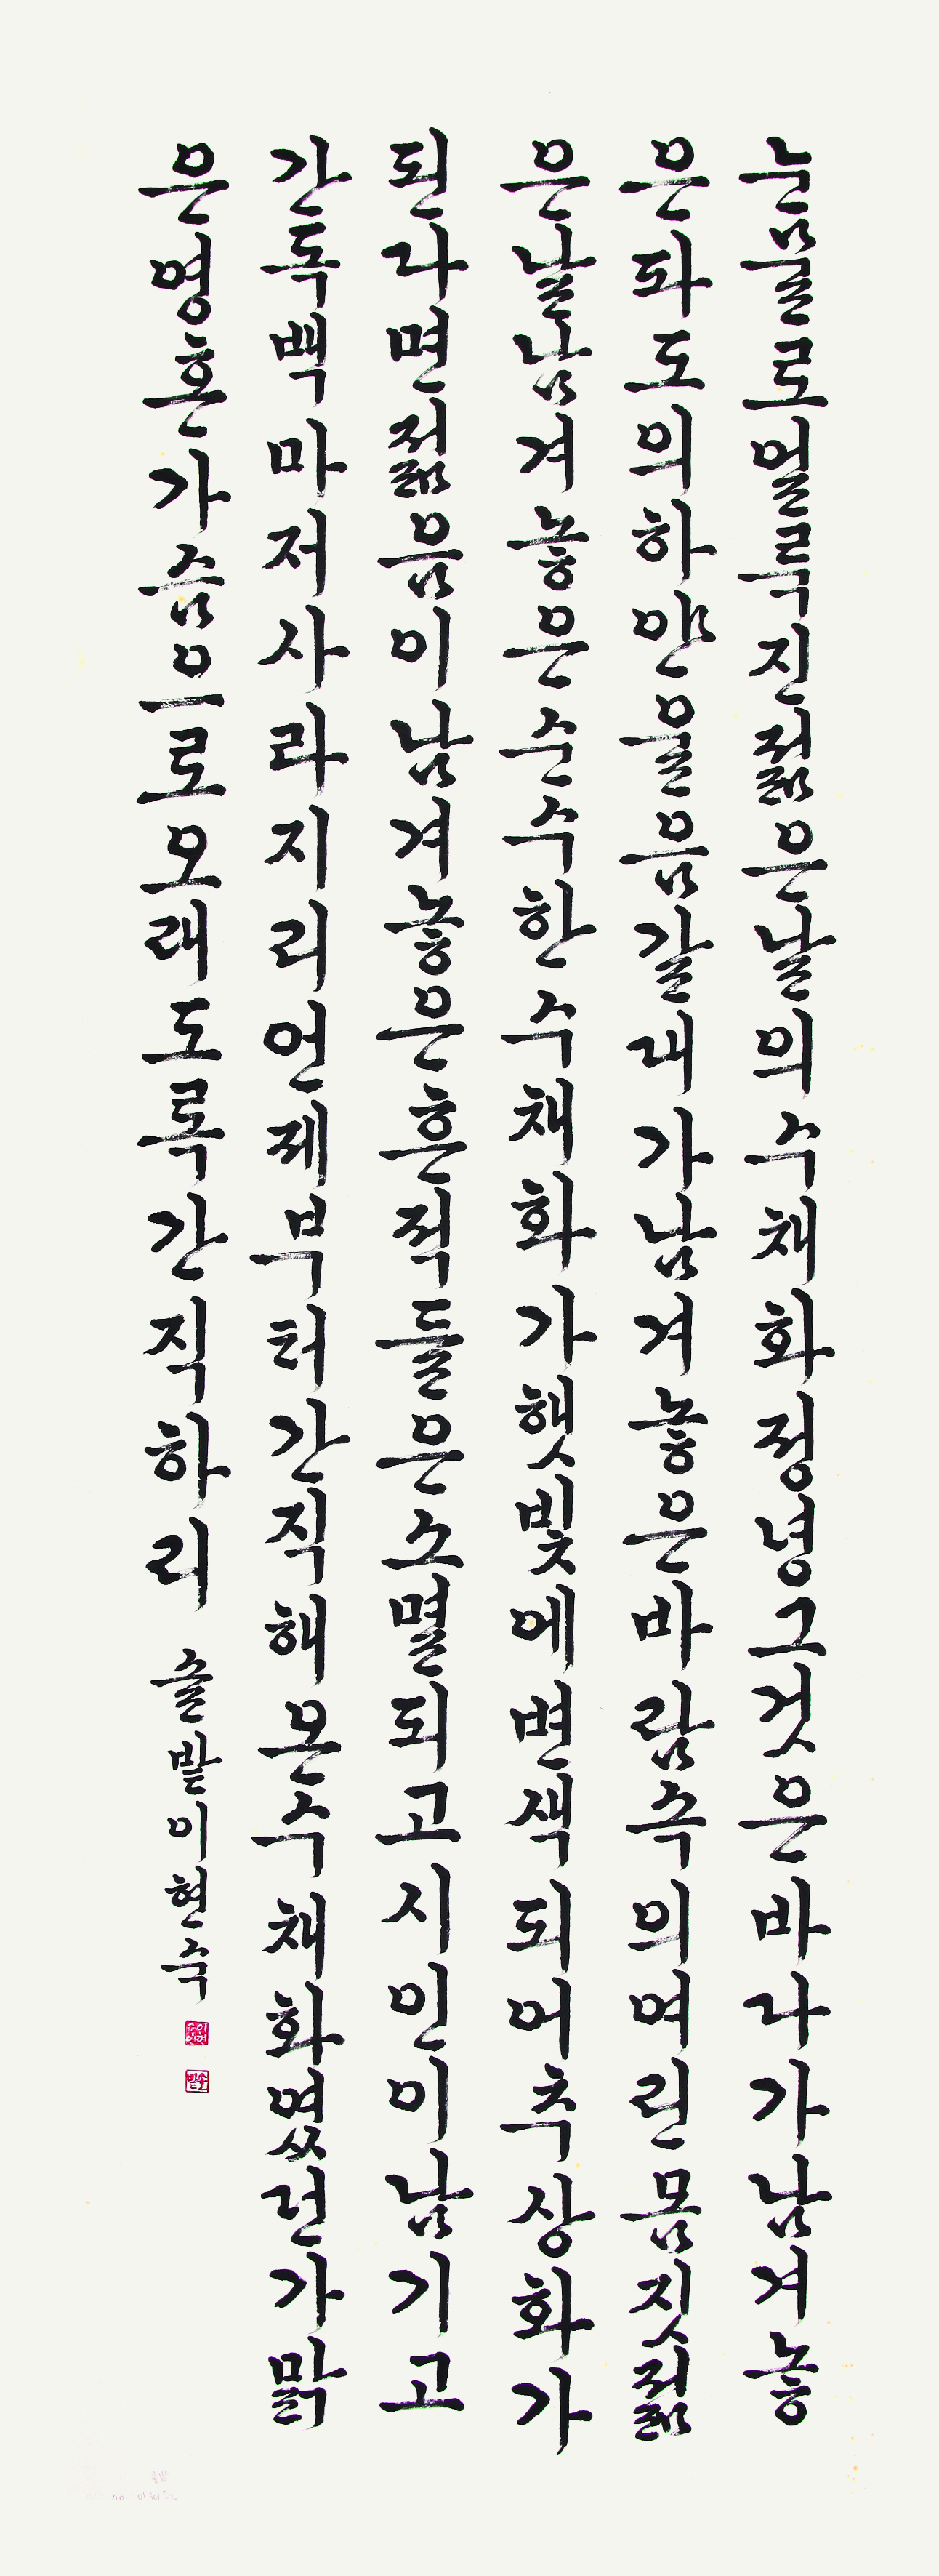 눈물로얼룩진젊은날의수채화정녕그것은바다가남겨놓
은파도의하얀울음갈대가남겨놓은바람속의여린몸짓젊
은날남겨놓은순수한수채화가햇빛에변색되어추상화가
된다면젊음이남겨놓은흔적들은소멸되고시인이남기고
간독백마저사라지리언제부터간직해온수채화였던가맑
은영혼가슴으로오래도록간직하리 솔밭이현숙